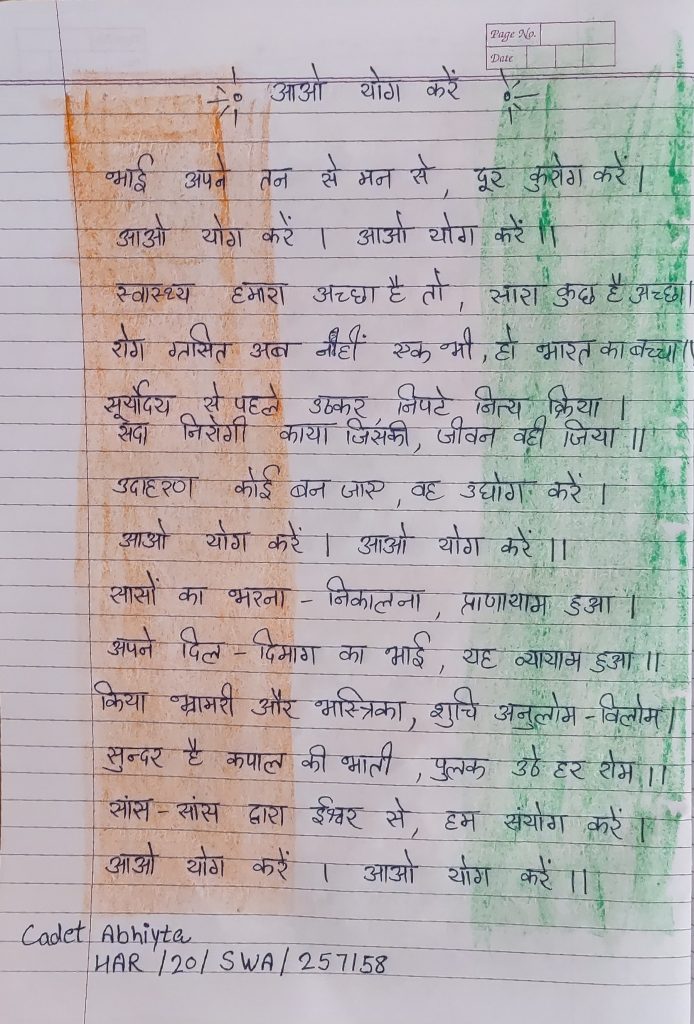 Page No.
Date
आओ योग करें
भाई अपने तन से मन से, दूर कुरोग करें।
आओ योग करें । आओ योग करें ॥
स्वास्थ्य हमारा अच्छा है तो, सारा कुछ है अच्छा।
रोग ग्तसित अब नहीं एक भी, हो भारत का बच्चा॥
सूर्योदय से पहले उठकर, निपटे नित्य क्रिया ।
सदा निरोगी काया जिसकी, जीवन वही जिया ॥
उदाहरण कोई बन जाए, वह उद्योग करें ।
आओ योग करें । आओ योग करें ॥
सासों का भरना - निकालना, प्राणायाम हुआ ।
अपने दिल - दिमाग का भाई, यह व्यायाम हुआ ॥
किया भ्रामरी और भस्त्रिका, शुचि अनुलोम - विलोम।
सुन्दर है कपाल की भाती, पुलक उठे हर रोम ॥
सांस - सांस द्वारा ईश्वर से, हम संयोग करें ।
आओ योग करें । आओ योग करें ॥
Cadet Abhiyta
HAR /20/ SWA/ 257158